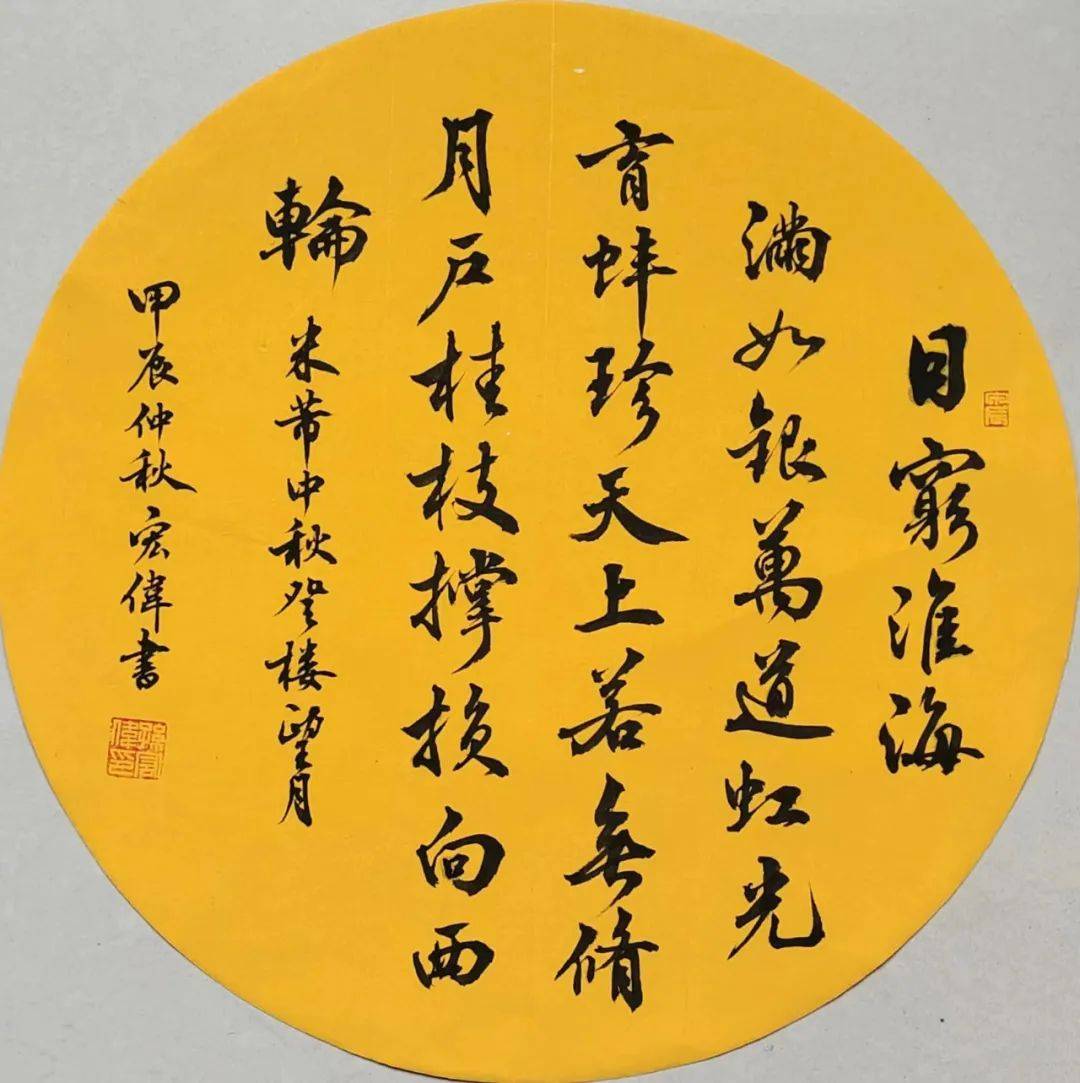 目窮淮海
滿如銀萬道虹光
育蚌珍天上若無脩
月戶桂枝撐損向西
輪 米芾中秋登楼望月
甲辰仲秋宏偉書